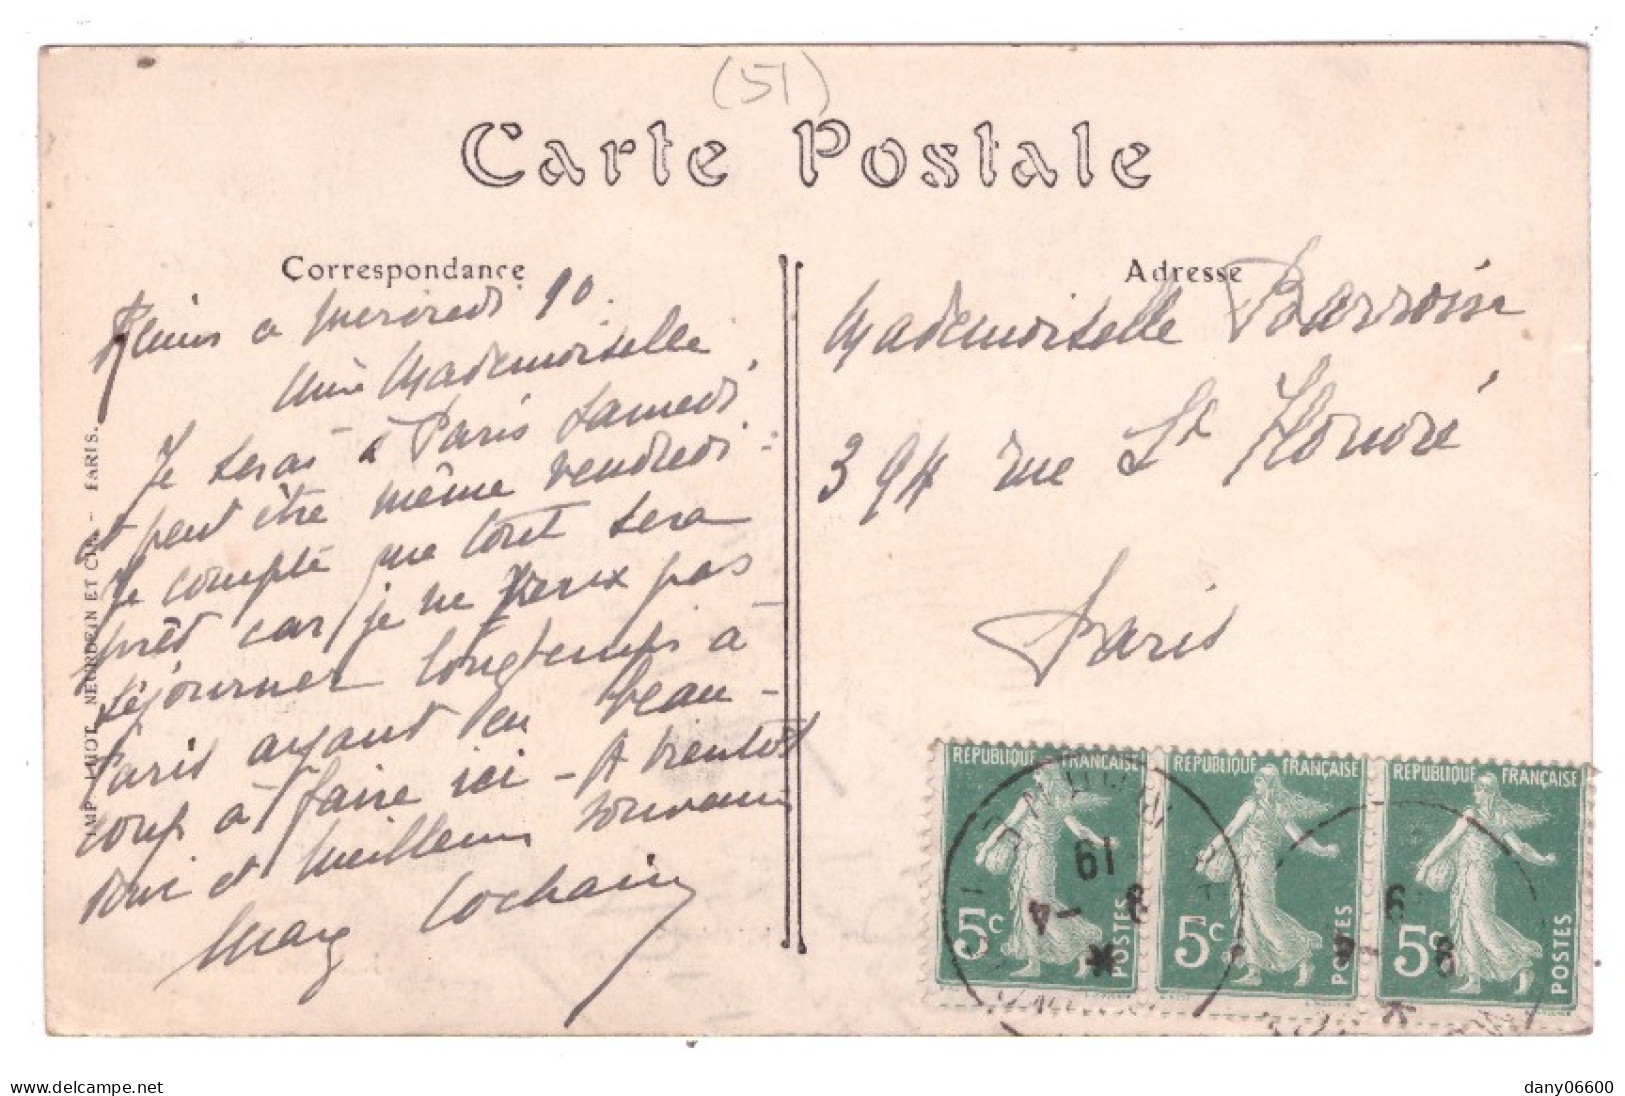 (51)
Carte Postale
Correspondance
Reims a Mercredi 10.
Mademoiselle
Je serai à Paris Samedi,
et peut être même vendredi -
Je compte que tout sera
prêt car je ne peux pas
séjourner longtemps à
Paris ayant eu beau-
coup à faire ici - A bientôt
donc et meilleurs souvenirs
Mary Cochain
Adresse
Mademoiselle Barroin
394 rue St Honoré
Paris
IMP. PHOT. NEURDEIN ET CIE - PARIS.
RÉPUBLIQUE FRANÇAISE
5c
POSTES
RÉPUBLIQUE FRANÇAISE
5c
POSTES
RÉPUBLIQUE FRANÇAISE
5c
POSTES
www.delcampe.net
dany06600